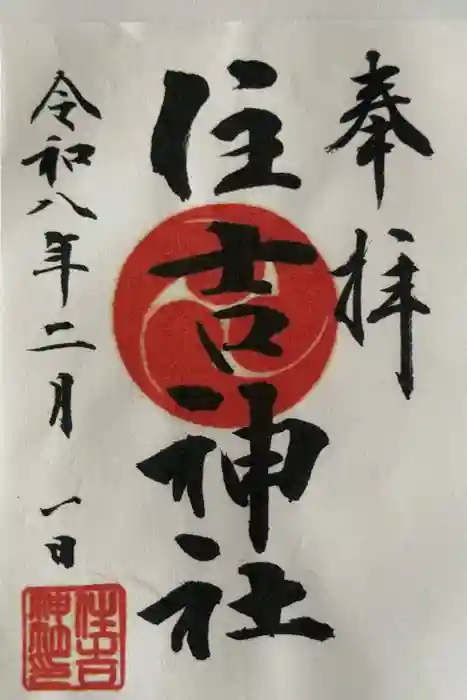 奉拝
住吉神社
令和八年二月一日
住吉
神社印